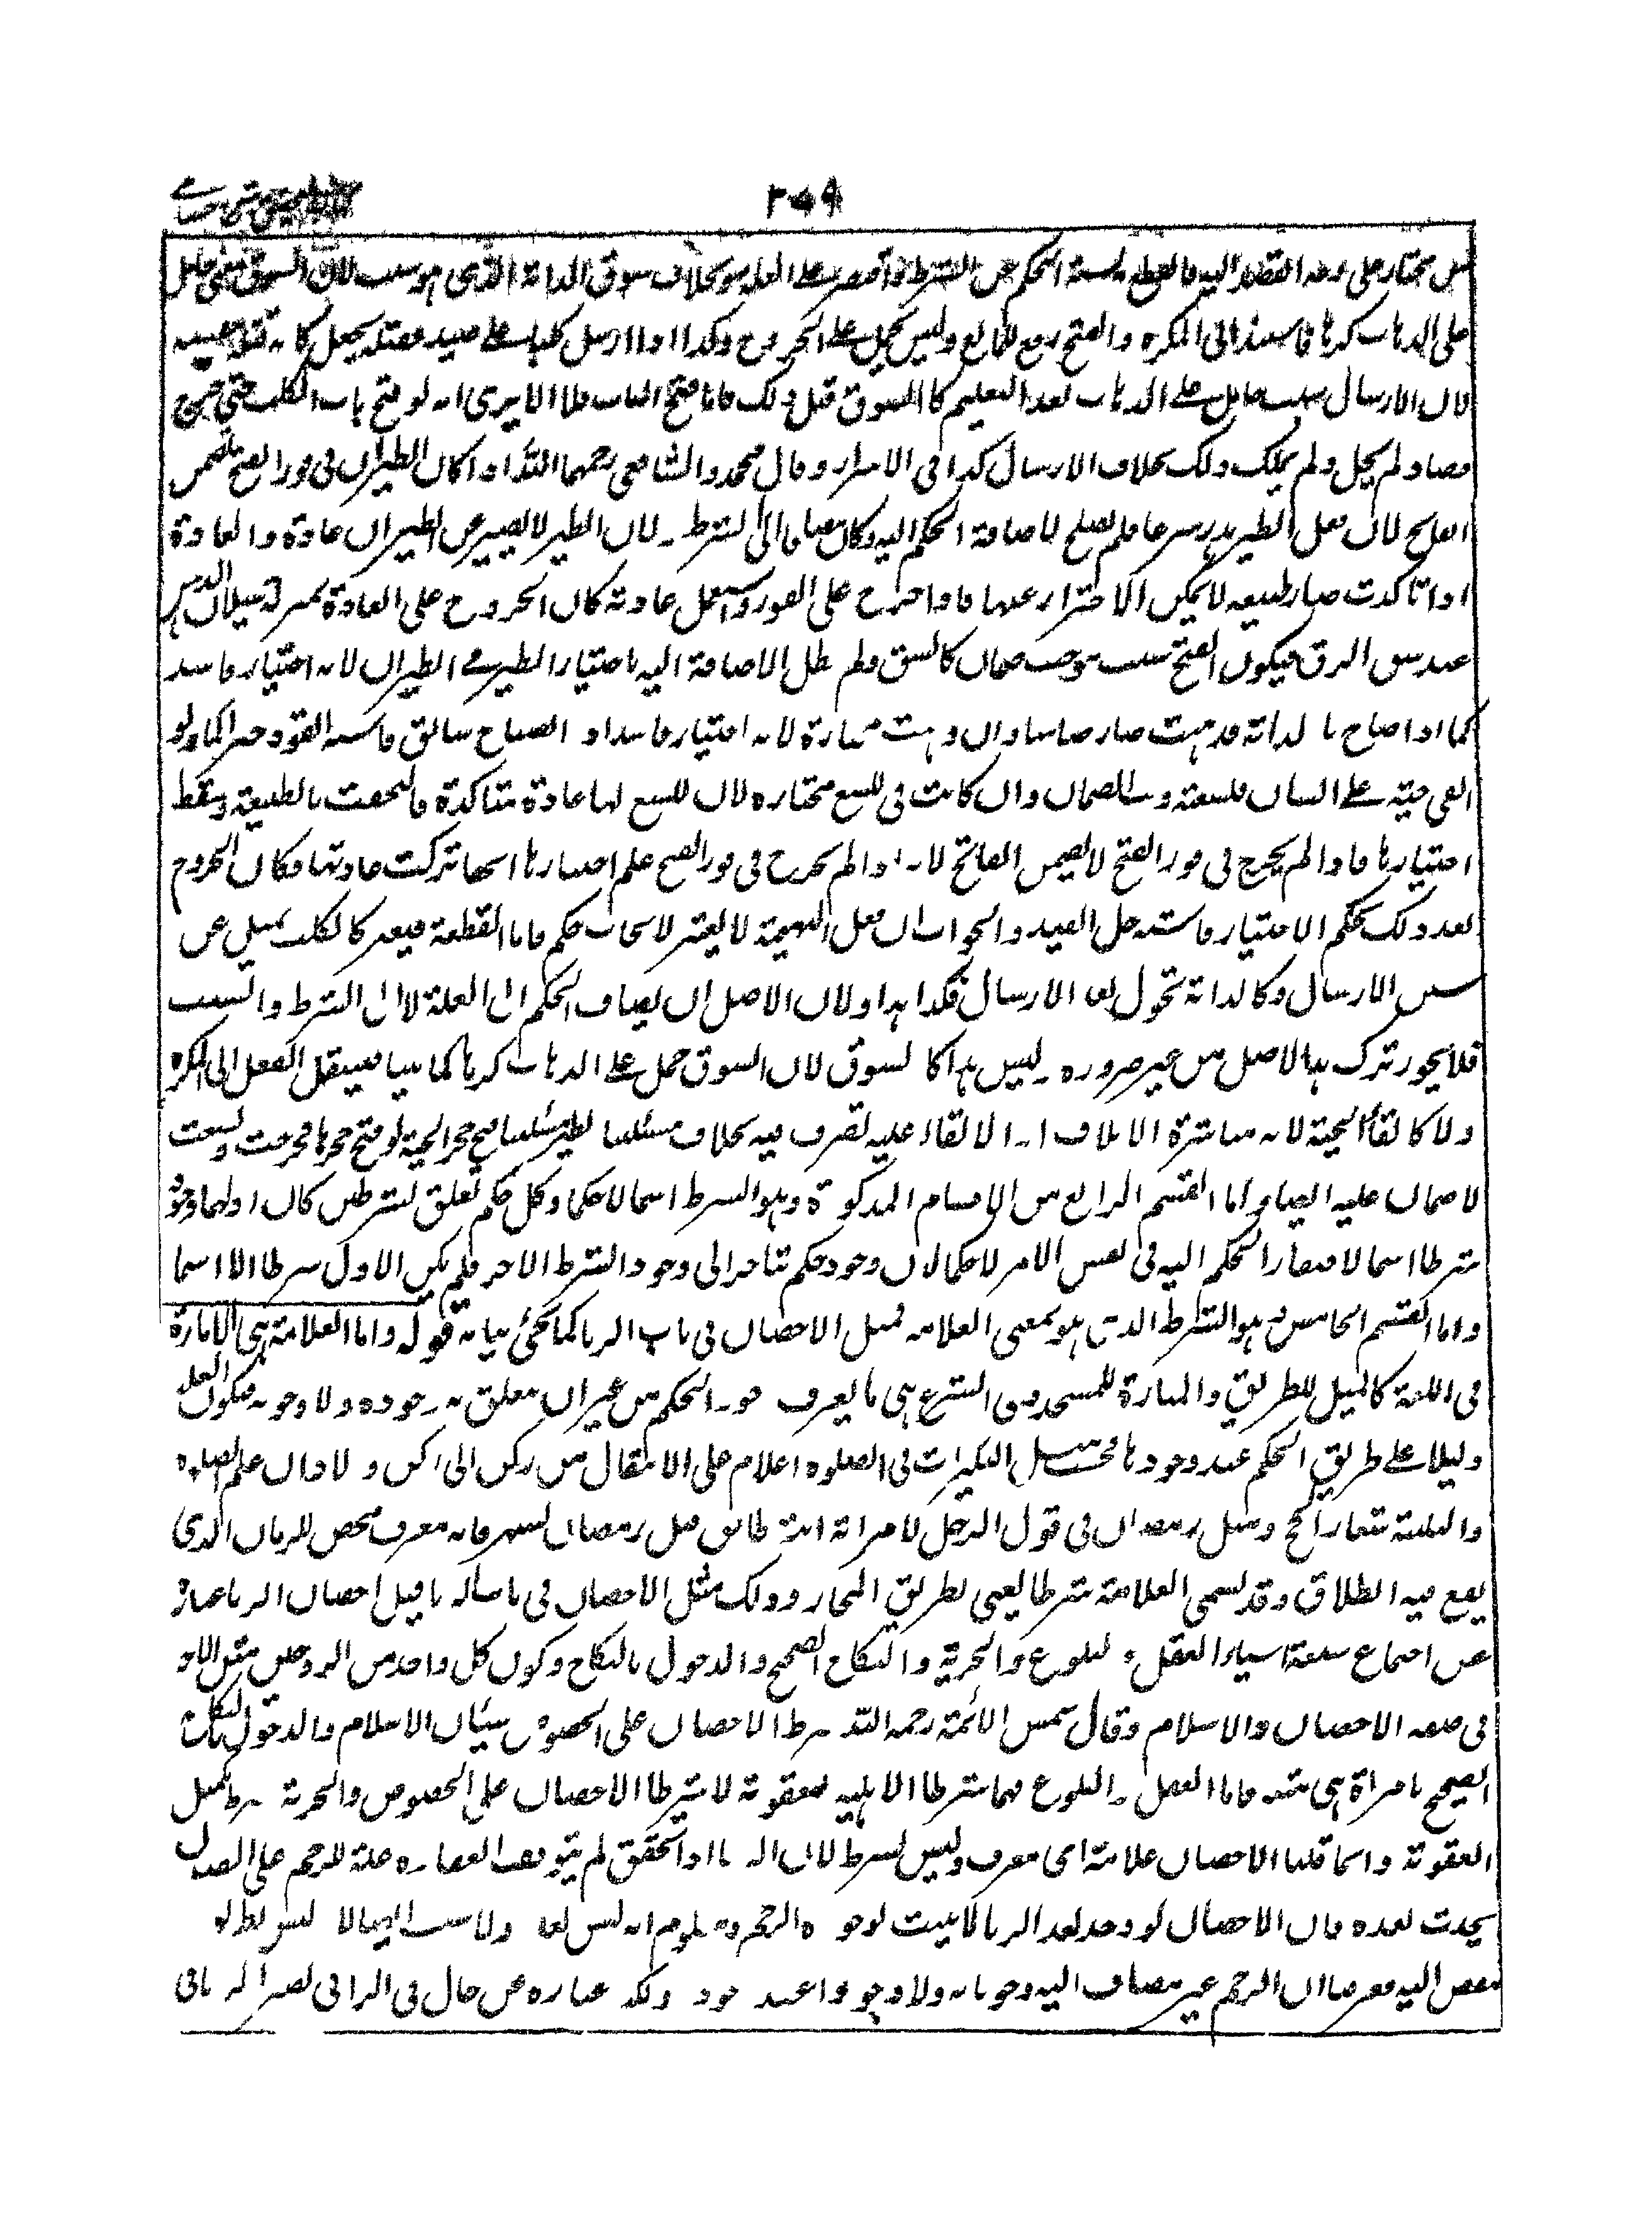 ٢٥٩
على الذهاب كرها فاستند الى المكره والفتح رفع المانع وليس بحمل على الخروج وكذا اذا ارسل كلبا على صيد فقتله يجعل كانه قتله بنفسه
لان الارسال سبب حامل على الذهاب بعد التعليم كالسوق قبل ذلك فاما فتح الباب فلا الا يرى انه لو فتح باب الكلب حتى خرج
فصاد لم يحل ولم يملك ذلك بخلاف الارسال كذا فى الاسرار وقال محمد والشافعى رحمهما الله اذا كان الطيران فى فور الفتح يضمن
الفاتح لان فعل الطير هدر شرعا فلم يصلح لاضافة الحكم اليه وكان مضافا الى الشرط ـ لان الطير لا يصبر عن الطيران عادة والعادة
اذا تاكدت صار طبيعة لا يمكن الاحتراز عنها فاذا خرج على الفور واستعمل عادته كان الخروج على العادة بمنزلة سيلان الدهن
عند شق الزق فيكون الفتح سبب موجب ضمان كالشق ولم يبطل الاضافة اليه باختيار الطير فى الطيران لانه اختيار فاسد
كما اذا صاح بالدابة فذهبت صار ضامنا وان ذهبت مختارة لانه اختيار فاسد اذ الصياح سائق فاشبه القود جبرا كما ولو
القى حية على انسان فلسعته وجب الضمان وان كانت فى اللسع مختارة لان اللسع لها عادة متاكدة فالتحقت بالطبيعة وسقط
اختيارها فاذا لم يخرج فى فور الفتح لا يضمن الفاتح لانه اذا لم يخرج فى فور الفتح علم اختيارها انها تركت عادتها فكان الخروج
بعد ذلك بحكم الاختيار فاشبه حل القيد والجواب ان فعل البهيمة لا يعتبر لايجاب حكم فاما لقطعه فيعتبر كالكلب يميل عن
سنن الارسال وكالدابة تجول بعد الارسال فكذا هذا ولان الاصل ان يضاف الحكم الى العلة لا الى الشرط والسبب
فلا يجوز ترك هذا الاصل من غير ضرورة ـ ليس هذا كالسوق لان السوق حمل على الذهاب كرها كما بينا فينتقل الفعل الى المكره
ولا كالقاء الحية لانه مباشرة الاتلاف اذ الالقاء عليه تصرف فيه بخلاف مسئلتنا نظير مسئلتنا فتح جحر الحية لو فتح جحرها فخرجت ولسعت
لا ضمان عليه ايضا واما القسم الرابع من الاقسام المذكورة وهو الشرط اسما لا حكما وكل حكم تعلق بشرطين كان اولهما وجودا
شرطا اسما لافتقار الحكم اليه فى نفس الامر لا حكما لان وجود حكم تتاخر الى وجود الشرط الاخر فلم يكن الاول شرطا الا اسما
واما القسم الخامس فهو الشرط الذى هو بمعنى العلامة فمثل الاحصان فى باب الزنا كما يجئ بيانه قوله واما العلامة فهى الامارة
فى اللغة كالميل للطريق والمنارة للمسجد وفى الشرع هى ما يعرف وجود الحكم من غير ان يتعلق به وجوده ولا وجوبه فيكون العلم
دليلا على طريق الحكم عند وجودها فحسب مثل التكبيرات فى الصلوة اعلام على الانتقال من ركن الى ركن و الاذان علم الصلوة
والتلبية شعار الحج ومثل رمضان فى قول الرجل لامراته انت طالق قبل رمضان بشهر فانه معرف محض للزمان الذى
يقع فيه الطلاق وقد تسمى العلامة شرطا يعنى بطريق المجاز وذلك مثل الاحصان فى باب الزنا قيل احصان الزنا عبارة
عن اجتماع سبعة اشياء العقل والبلوغ والحرية والنكاح الصحيح والدخول بالنكاح وكون كل واحد من الزوجين مثل الاخر
فى صفة الاحصان والاسلام وقال شمس الائمة رحمه الله شرط الاحصان على الخصوص شيئان الاسلام والدخول بالنكاح
الصحيح بامراة هى مثله فاما العقل والبلوغ فهما شرطا الاهلية للعقوبة لا شرطا الاحصان على الخصوص والحرية شرط تكميل
العقوبة وانما قلنا الاحصان علامة اى معرف وليس بشرط لان الزنا اذا تحقق لم يتوقف انعقاده علة للرجم على احصان
يحدث بعده فان الاحصان لو وجد بعد الزنا لا يثبت بوجوده الرجم ومعلوم انه ليس بعلة ولا سبب ايضا لانه ليس بطريق
مفض اليه فعرفنا ان الرجم غير مضاف اليه وجوبا به ولا وجودا عند وجوده ولكنه عبارة عن حال فى الزانى يصير الزنا فى